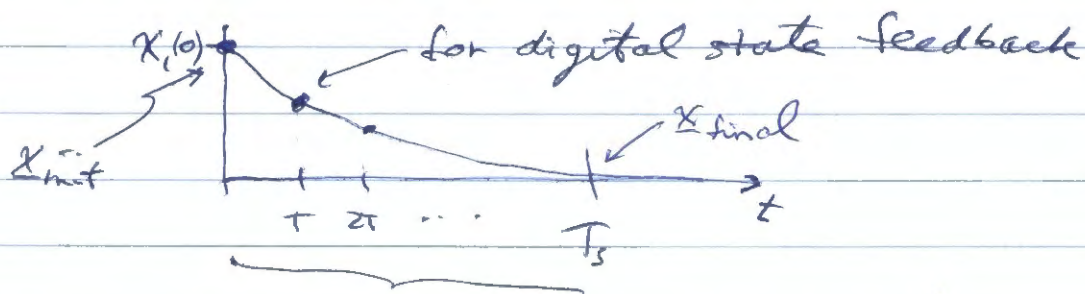 x₁(0) for digital state feedback
x init x final
T 2T ... Tₛ t